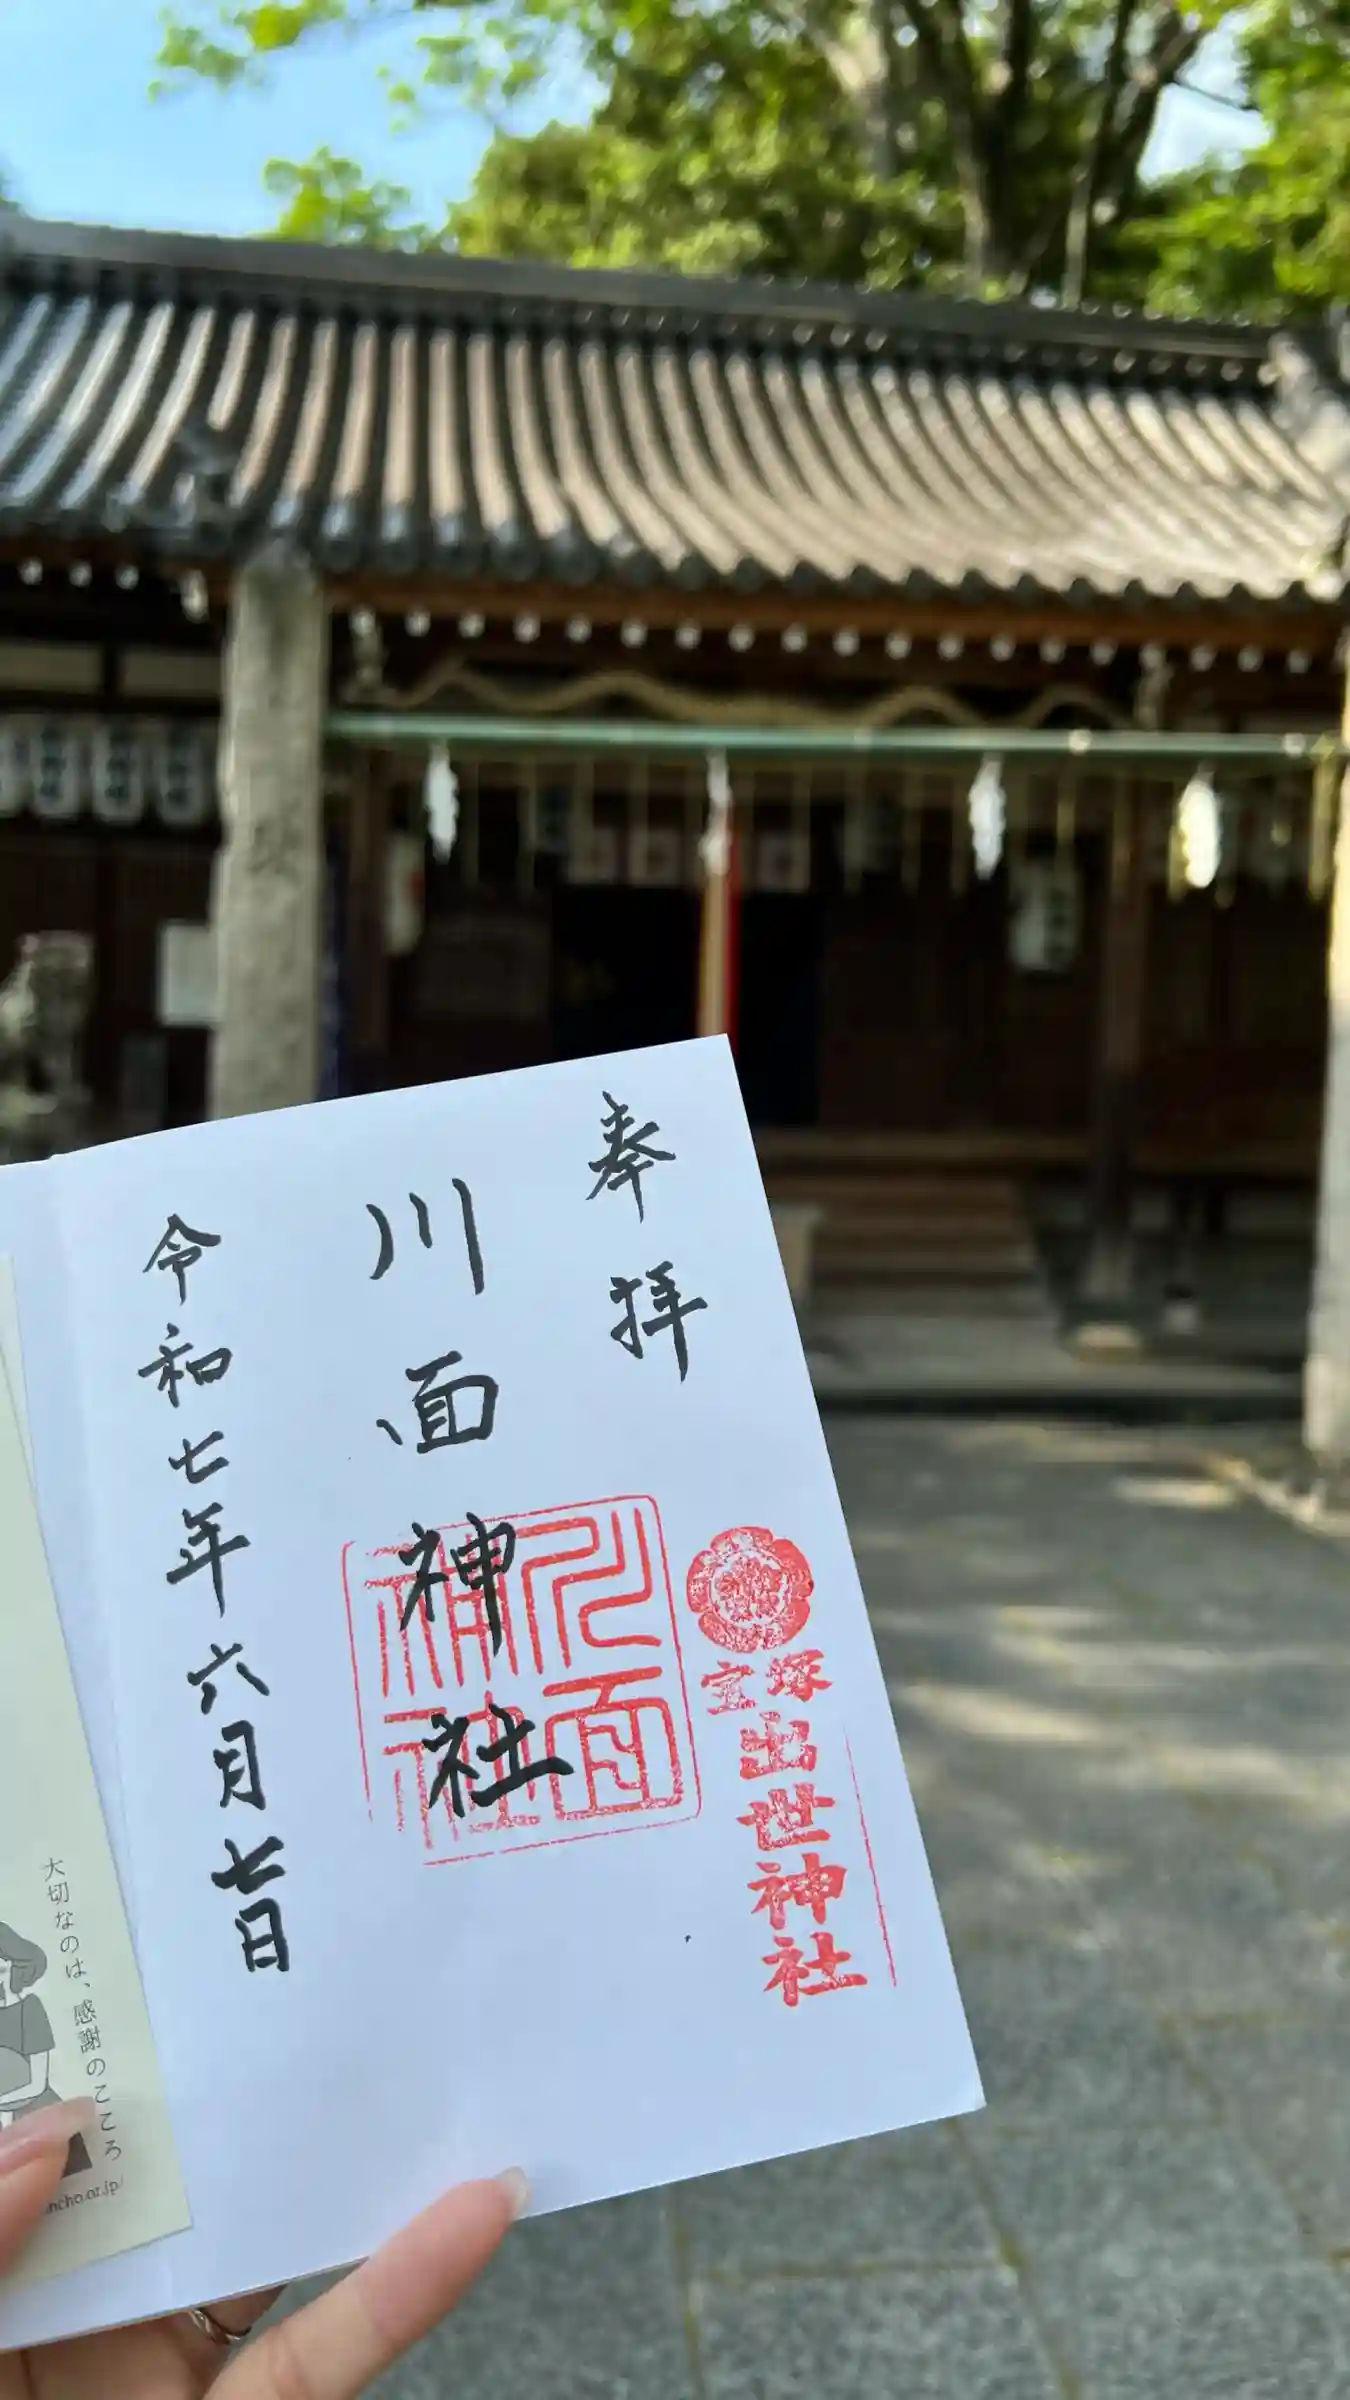 奉拝
川面神社
川面神社
宝塚
出世神社
令和七年六月七日
大切なのは、感謝のこころ
ncho.or.jp/